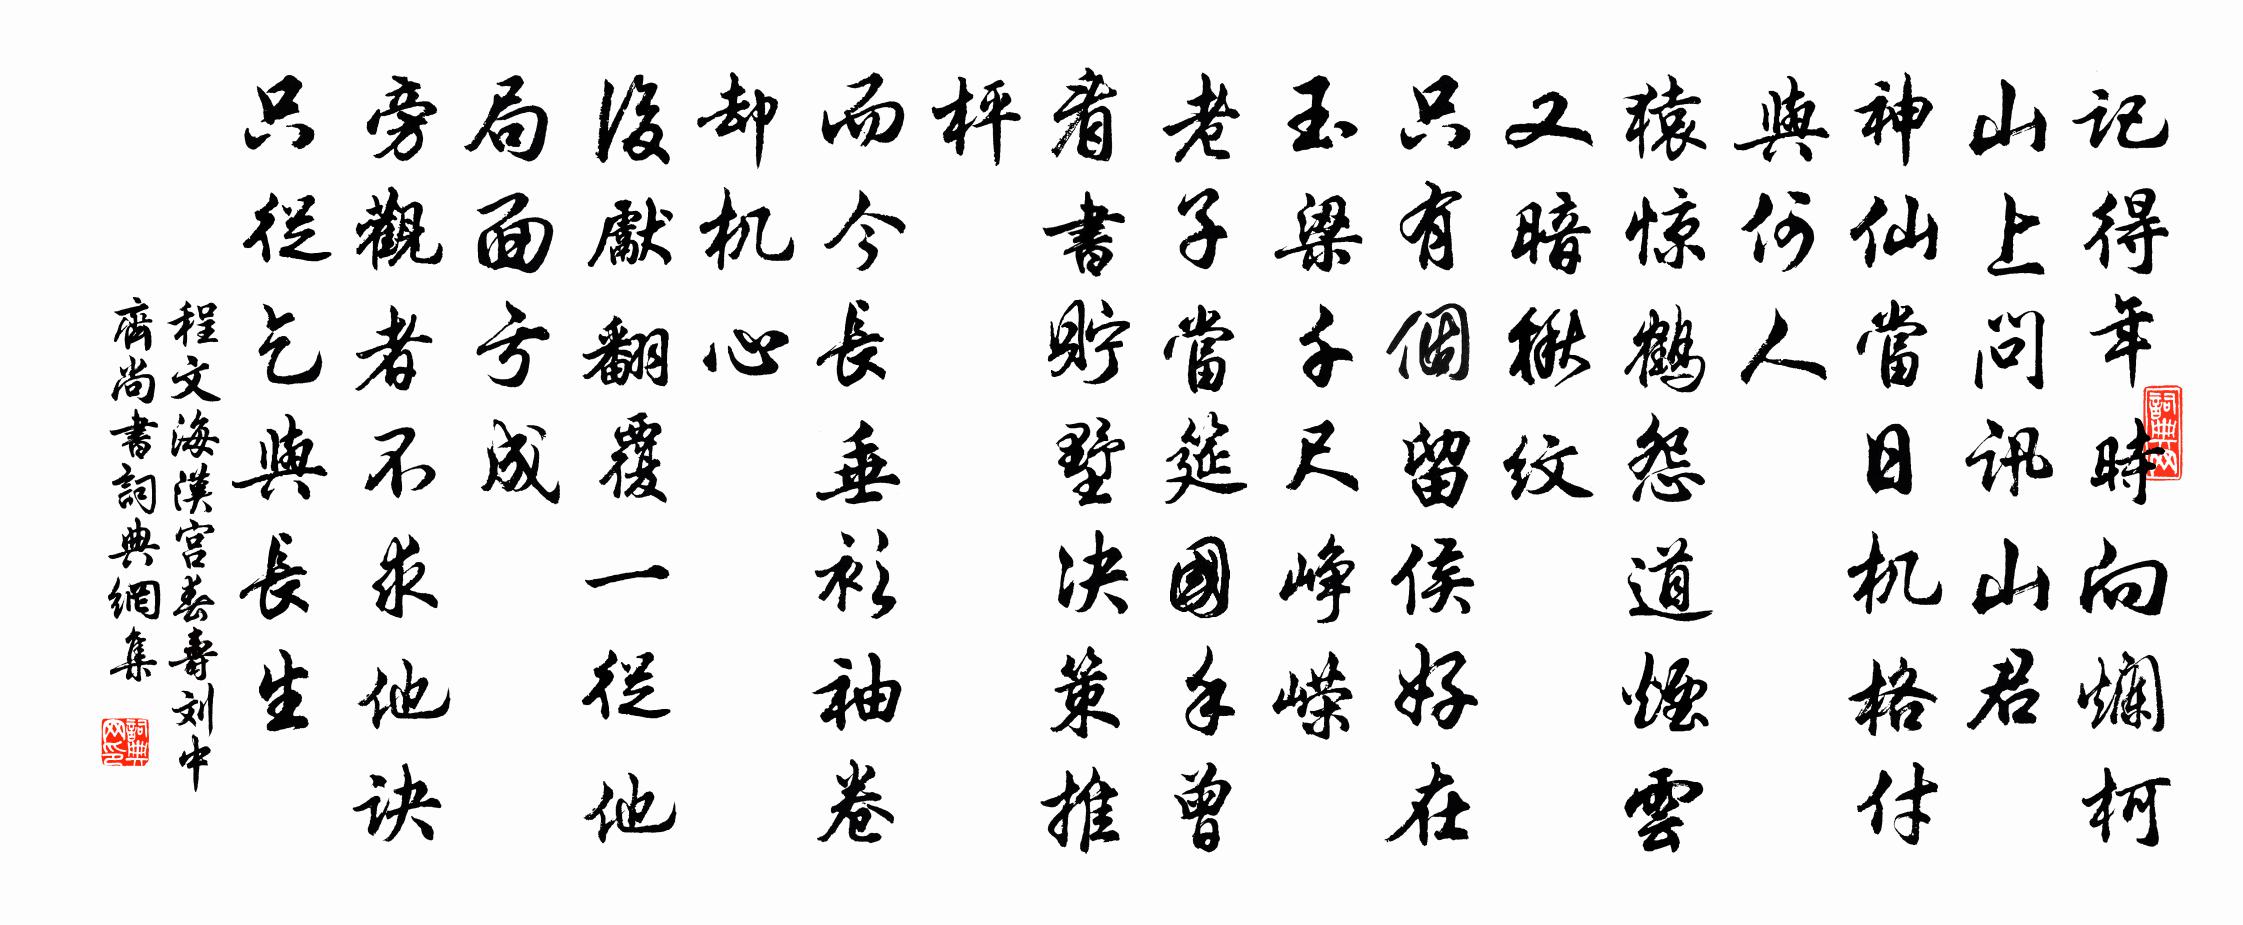 記得年時向爛柯
山上問訊山君
神仙當日机格付
與何人
猿惊鶴怨道煙雲
又暗楸紋
只有個留侯好在
玉梁千尺崢嶸
老子當筵國手曾
看書貯墅决策推
枰
而今長垂衫袖卷
却机心
後獻翻覆一從他
局面亏成
旁觀者不求他訣
只從乞與長生
程文海漢宮春壽刘中
齊尚書詞典網集
詞典网
詞典网印